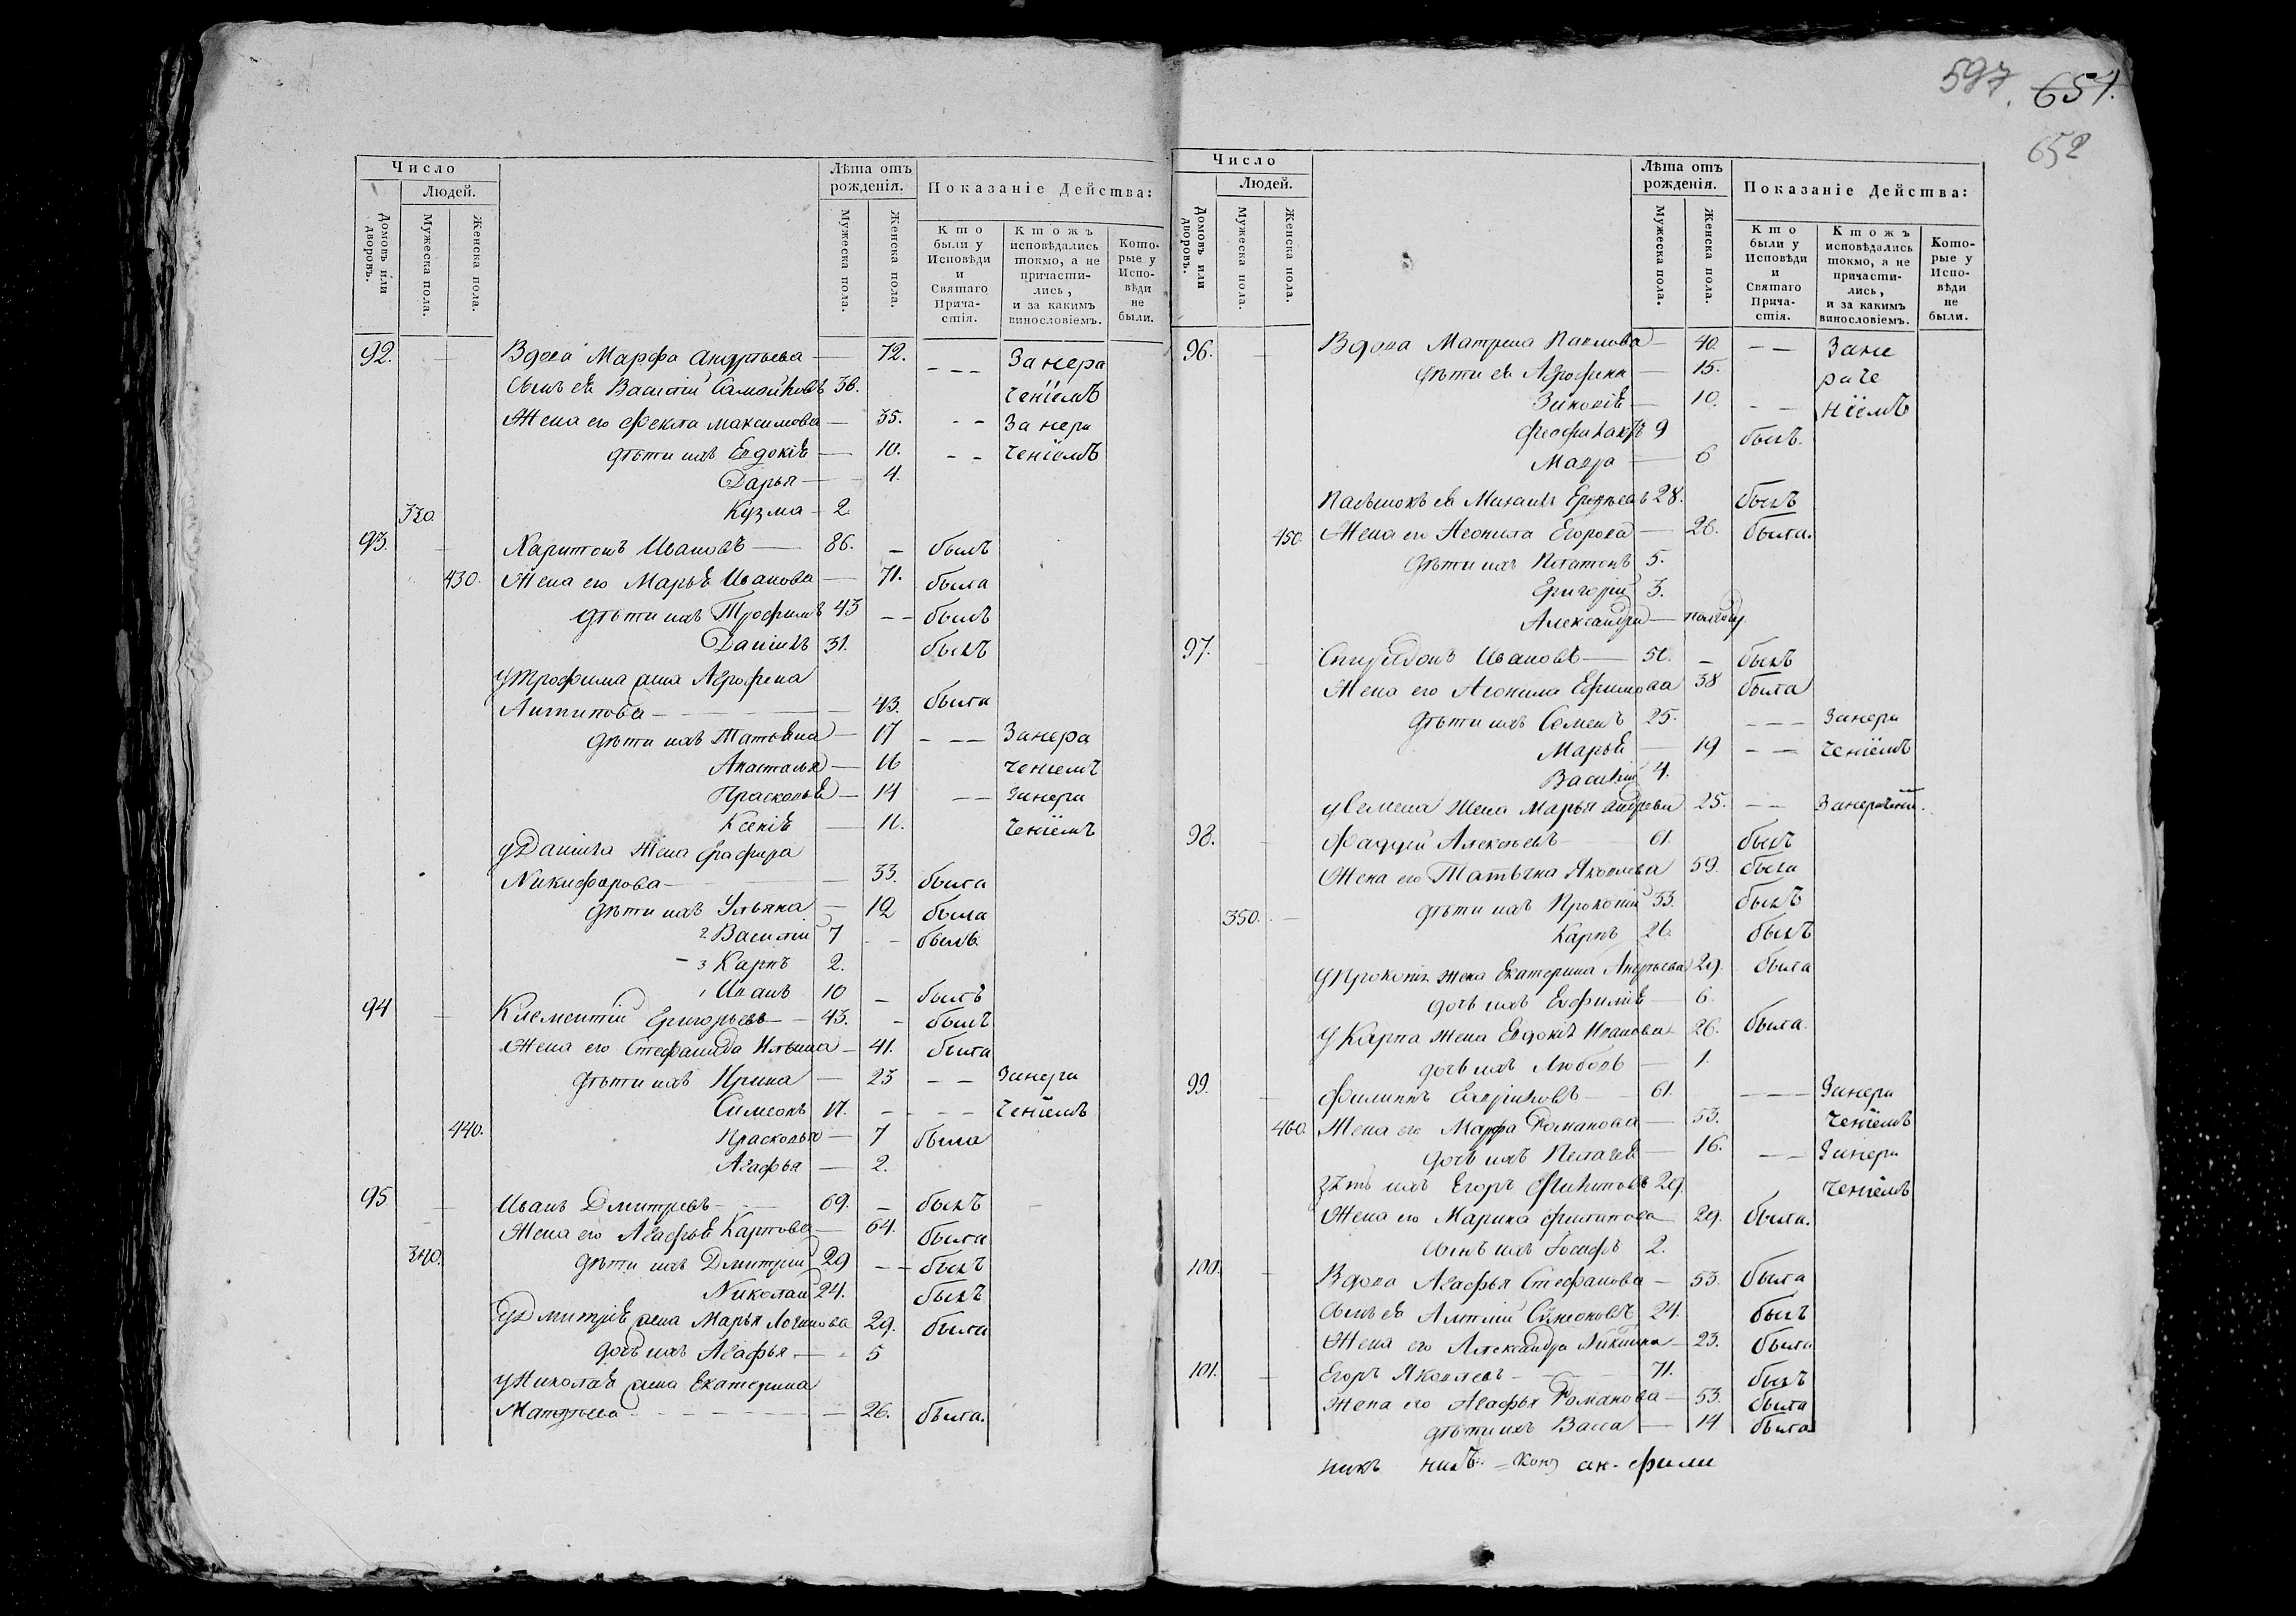 597. 651.
652
Число
Людей.
Домовъ или дворовъ.
Мужеска пола.
Женска пола.
Лѣта отъ рожденія.
Мужеска пола.
Женска пола.
Показаніе Действа:
Кто были у Исповѣди и Святаго Прича-стія.
Ктожъ исповѣдались токмо, а не причасти-лись, и за какимъ винословіемъ.
Кото-рые у Испо-вѣди не были.
92. Вдова Марфа Андреева 72. Занера
Сынъ ея Василій Самойловъ 36. ченіемъ
Жена его Фекла Максимова 35. Занера
дѣти ихъ Евдокіѣ 10. ченіемъ
Дарья 4.
330. Кузма 2.
93. Харитонъ Ивановъ 86. былъ
430. Жена его Марьѣ Иванова 71. была
дѣти ихъ Трофимъ 43 былъ
Даниилъ 31. былъ
У Трофима жена Агрофена
Антипова 43. была
дѣти ихъ Татьяна 17 Занера
Анастасья 16 ченіемъ
Прасковьѣ 14 Занера
Ксеніѣ 11. ченіемъ
У Даниила жена Глафира
Никифорова 33. была
дѣти ихъ Ульяна 12 была
2 Василий 7 былъ
3 Карпъ 2.
1 Иванъ 10 былъ
94 Климентій Григорьевъ 43. былъ
Жена его Стефанида Ильина 41. была
дѣти ихъ Ирина 23 Занера
Симеонъ 17. ченіемъ
440. Прасковья 7 была
Агафья 2.
95 Иванъ Дмитревъ 69. былъ
Жена его Агафьѣ Карпова 64. была
340. дѣти ихъ Дмитрій 29 былъ
Николай 24. былъ
У Дмитріѣ жена Марья Логинова 29. была
дочь ихъ Агафья 5
У Николаѣ жена Екатерина
Матвѣева 26. была.
Число
Людей.
Домовъ или дворовъ.
Мужеска пола.
Женска пола.
Лѣта отъ рожденія.
Мужеска пола.
Женска пола.
Показаніе Действа:
Кто были у Исповѣди и Святаго Прича-стія.
Ктожъ исповѣдались токмо, а не причасти-лись, и за какимъ винословіемъ.
Кото-рые у Испо-вѣди не были.
96. Вдова Матрена Павлова 40. Зане
дѣти ея Агрофена 15. раче
Зиновіѣ 10. ніемъ
Феофилактъ 9 былъ.
Мавра 6
Михаилъ 28. былъ
450. Жена его Леонила Егорова 26. была.
дѣти ихъ Платонъ 5.
Григорій 3.
Александра полгода
97. Спиридонъ Ивановъ 50. былъ
Жена его Леонила Ефимова 38 была
дѣти ихъ Семенъ 25. Занера
Марьѣ 19 ченіемъ
Василий 4.
У Семена жена Марья Андреева 25. Занераченіе.
98. Фаддей Алексѣевъ 61. былъ
Жена его Татьяна Яковлева 59. была
350. дѣти ихъ Прокопій 33. былъ
Карпъ 26. былъ
У Прокопія жена Екатерина Андреева 29. была
дочь ихъ Евфиміѣ 6.
У Карпа жена Евдокіѣ Иванова 26. была.
дочь ихъ Любовь 1.
99. Филиппъ 61. Занера
460. Жена его Марфа Романова 53. ченіемъ
дочь ихъ Пелагеѣ 16. Занера
зять ихъ Егоръ Филиповъ 29. ченіемъ
Жена его Марина Филипова 29. была.
сынъ ихъ Іосифъ 2.
100. Вдова Агафья Стефанова 53. была
Сынъ ея Симеоновъ 24. былъ
Жена его Александра Никитина 23. была
101. Егоръ Яковлевъ 71. былъ
Жена его Агафья Романова 53. была
дѣти ихъ Васса 14 была